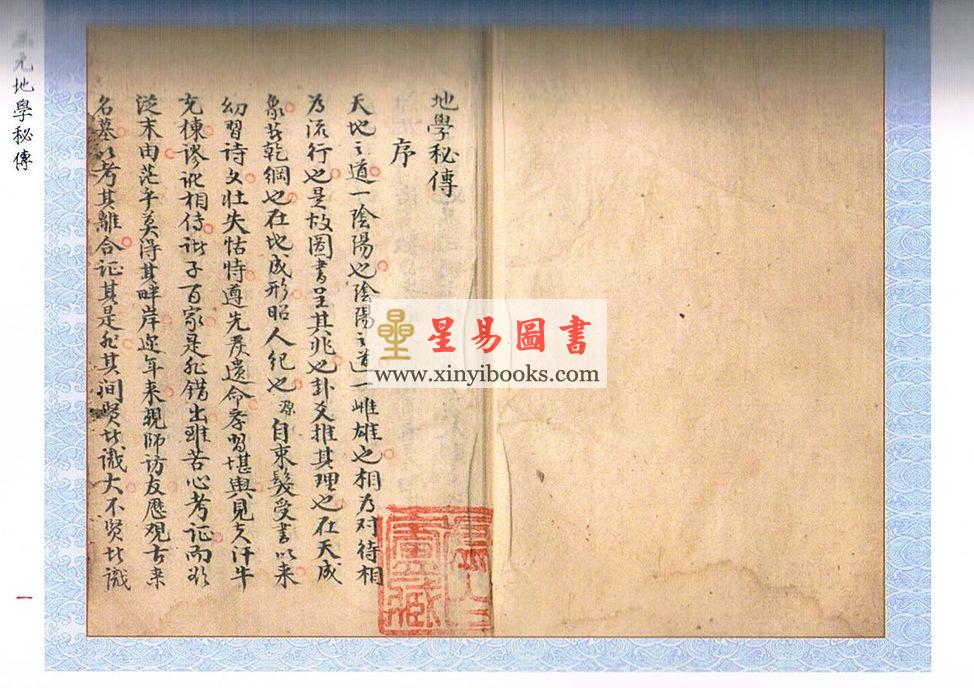 元地學秘傳
一
地學秘傳
序
天地之道一陰陽也陰陽之道一雌雄也相为对待相
为流行也是故圖書呈其兆也卦爻推其理也在天成
象若乾綱也在地成形昭人纪也源自束髮受書以来
幼習诗文壮失怙恃遵先君遗命孝習堪輿見夫汗牛
充棟谬讹相传诸子百家是非錯出雖苦心考证而欲
泛末由茫乎莫得其畔岸迩年来親師访友歷观古来
名墓以考其離合证其是非其间贤者識大不贤者識
星易圖書
www.xinyibooks.com